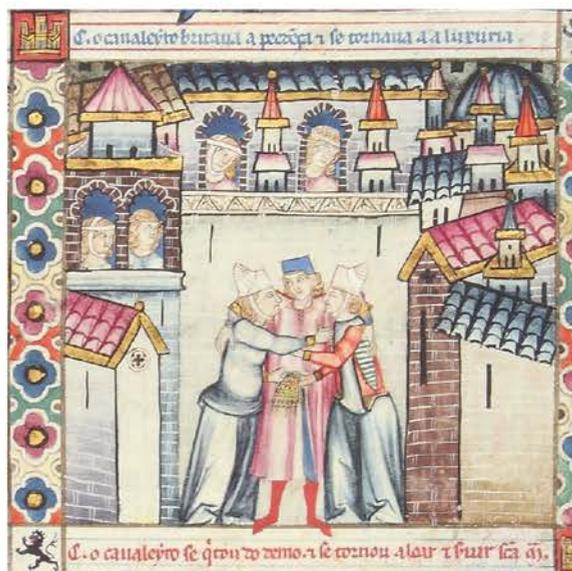 C. o caualeyto britaua a pecẽça ⁊ se tornaua aa luxuria.
C. o caualeyto se q̇tou do demo. ⁊ se tornou a loar ⁊ seruir scã m̃.